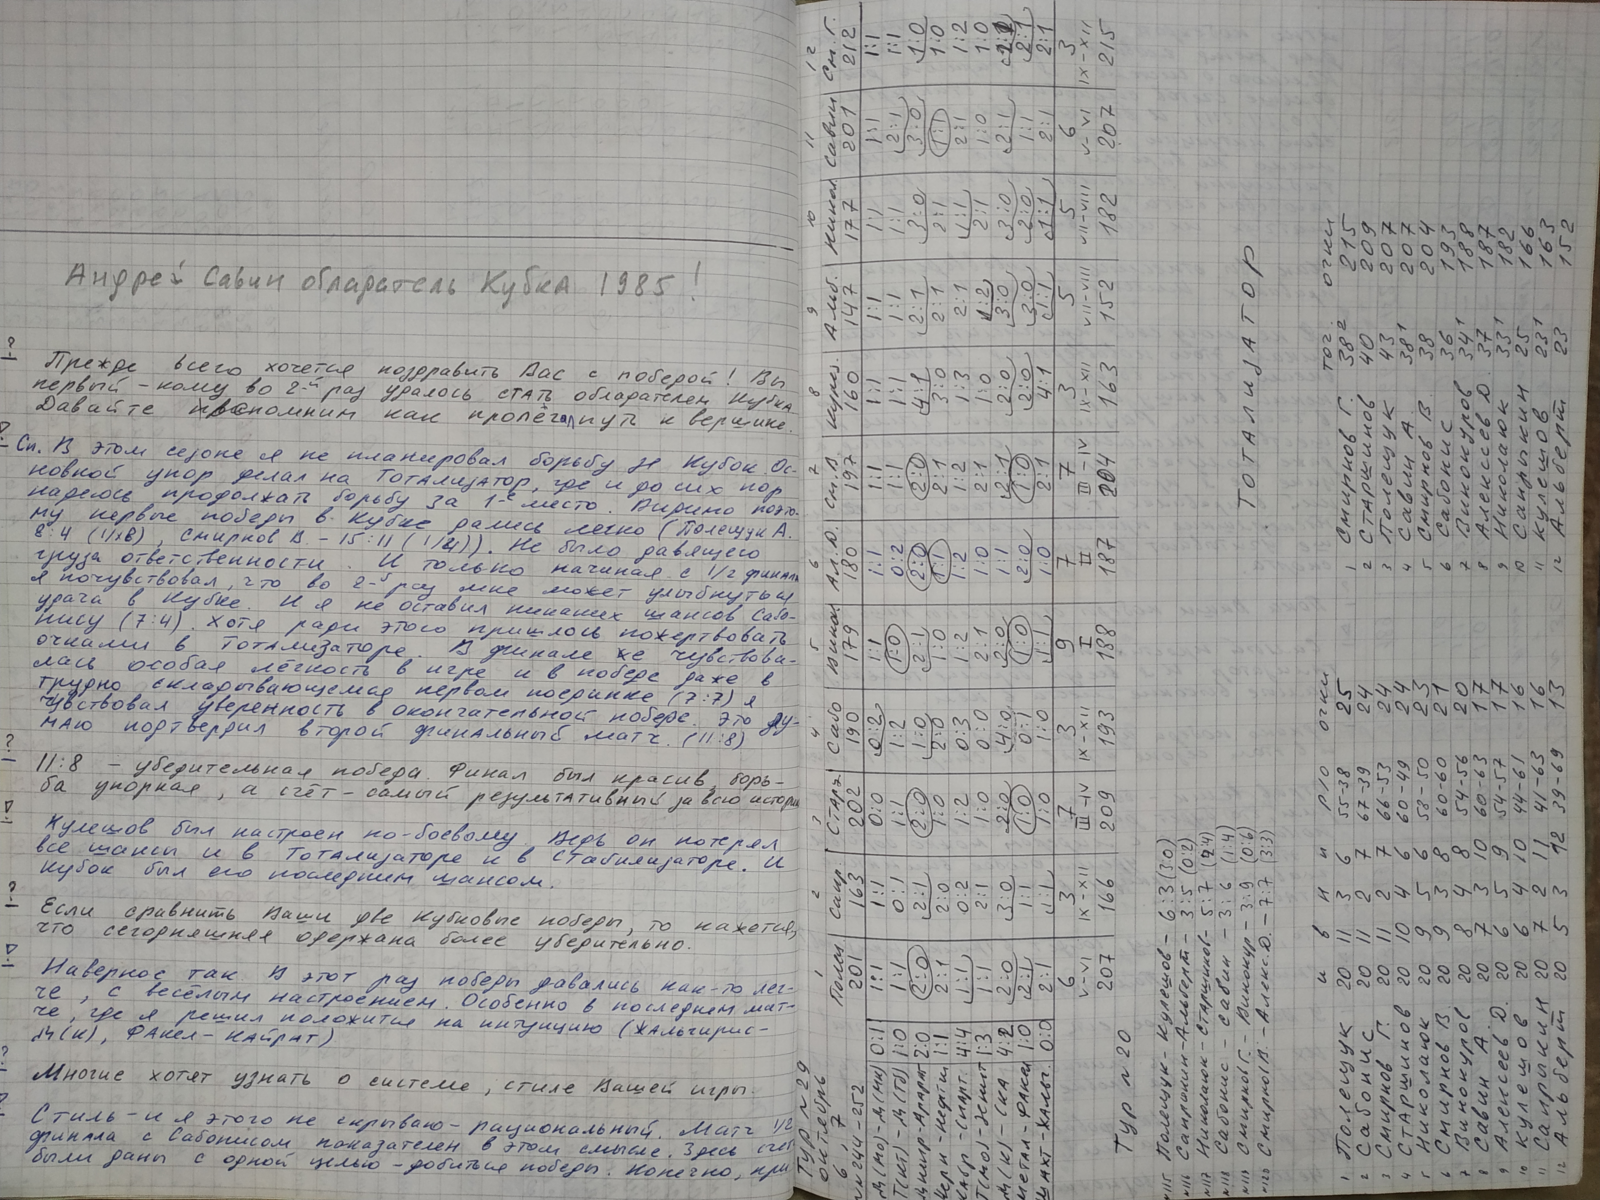 Андрей Савин обладатель Кубка 1985!
Прежде всего хочется поздравить Вас с победой! Вы
первый – кому во 2-й раз удалось стать обладателем Кубка
Давайте вспомним как пролёгал путь к вершине.
В этом сезоне я не планировал борьбу за Кубок. Ос-
новной упор делал на Тотализатор, где и до сих пор
надеюсь продолжать борьбу за 1-е место. Видимо поэто-
му первые победы в Кубке дались легко (Полещук А.
8:4 (1/8), Смирнов В. – 15:11 (1/4)). Не было давящего
груза ответственности. И только начиная с 1/2 финала
я почувствовал, что во 2-й раз мне может улыбнуться
удача в Кубке. И я не оставил никаких шансов Сабо-
нису (7:4). Хотя ради этого пришлось пожертвовать
очками в Тотализаторе. В финале же чувствова-
лась особая лёгкость в игре и в победе даже в
трудно складывающемся первом поединке (7:7) я
чувствовал уверенность в окончательной победе. Это ду-
маю подтвердил второй финальный матч. (11:8)
11:8 – убедительная победа. Финал был красив, борь-
ба упорная, а счёт – самый результативный за всю истори
Кулешов был настроен по-боевому. Ведь он потерял
все шансы и в Тотализаторе и в Стабилизаторе. И
Кубок был его последним шансом.
Если сравнить Ваши две Кубковые победы, то кажется,
что сегодняшняя одержана более убедительно.
Наверное так. В этот раз победы давались как-то лег-
че, с весёлым настроением. Особенно в последнем мат-
че, где я решил положится на интуицию (Жальгирис –
Д(К), Факел – Кайрат)
Многие хотят узнать о системе, стиле Вашей игры.
Стиль – и я этого не скрываю – рациональный. Матч 1/2
финала с Сабонисом показателен в этом смысле. Здесь
были даны с одной целью – добиться победы. Конечно, при
Тур №29
октябрь
6, 7
№№244-252
Д(Мо) - Д(Мн) 0:1
Т(Кт) - Д(Тб) 1:0
Днепр - Арарат 2:0
Черн - Нефтчи 1:1
Кайр - Спарт. 4:4
Т(Мо) - Зенит 1:3
Д(К) - СКА 4:2
Метал - Факел 1:0
Шахт - Жальг. 0:0
1 Полещ 201 1:1 1:1 2:0 2:1 1:1 1:1 2:0 2:1 2:1 6 V-VI 207
2 Сапр. 163 1:1 0:1 2:1 2:0 0:2 2:1 3:0 1:1 1:1 3 IX-XII 166
3 Старш 202 0:0 1:1 2:0 1:0 1:2 1:0 2:0 1:0 1:0 7 III-IV 209
4 Сабо 190 0:2 1:2 1:0 2:0 0:3 0:0 4:0 0:1 1:0 3 IX-XII 193
5 Винок. 179 1:1 1:0 2:1 1:0 1:2 2:1 2:0 1:0 1:1 9 I 188
6 Ал.Д. 180 1:1 0:2 2:0 1:1 1:2 1:0 1:1 2:0 1:0 7 II 187
7 См.В. 197 1:1 1:1 2:0 2:1 1:2 2:1 2:1 1:0 2:1 7 III-IV 204
8 Кулеш. 160 1:1 1:1 4:1 3:0 1:3 1:0 2:0 2:0 4:1 3 IX-XII 163
9 Альб. 147 1:1 1:1 2:1 2:1 2:1 1:2 3:0 3:0 1:1 5 VII-VIII 152
10 Никол 177 1:1 1:1 3:0 2:1 1:1 2:1 3:0 2:0 1:1 5 VII-VIII 182
11 Савин 201 1:1 2:1 3:0 1:1 2:1 1:0 2:1 1:1 2:1 6 V-VI 207
12 См.Г. 212 1:1 1:1 1:0 1:0 1:2 1:0 2:1 2:1 3 IX-XII 215
Тур №20
№115 Полещук - Кулешов - 6:3 (3:0)
№116 Сапрыкин - Альберт - 3:5 (0:2)
№117 Николаюк - Старшинов - 5:7 (2:4)
№118 Сабонис - Савин - 3:6 (1:4)
№119 Смирнов Г. - Винокур - 3:9 (0:6)
№120 Смирнов В. - Алекс.Д. - 7:7 (3:3)
и в н п р/о очки
1 Полещук 20 11 3 6 55-38 25
2 Сабонис 20 11 2 7 67-39 24
3 Смирнов Г. 20 11 2 7 66-53 24
4 Старшинов 20 10 4 6 60-49 24
5 Николаюк 20 9 5 6 58-50 23
6 Смирнов В. 20 9 3 8 60-60 21
7 Винокуров 20 8 4 8 54-56 20
8 Савин А. 20 7 3 10 60-63 17
9 Алексеев Д. 20 6 5 9 54-57 17
10 Кулешов 20 6 4 10 44-61 16
11 Сапрыкин 20 7 2 11 41-63 16
12 Альберт 20 5 3 12 39-69 13
ТОТАЛИЗАТОР
тог. очки
1 Смирнов Г. 38² 215
2 Старшинов 40 209
3 Полещук 43 207
4 Савин А. 38¹ 207
5 Смирнов В. 38 204
6 Сабонис 36 193
7 Винокуров 34¹ 188
8 Алексеев Д. 37 187
9 Николаюк 33¹ 182
10 Сапрыкин 25 166
11 Кулешов 23¹ 163
12 Альберт 23 152